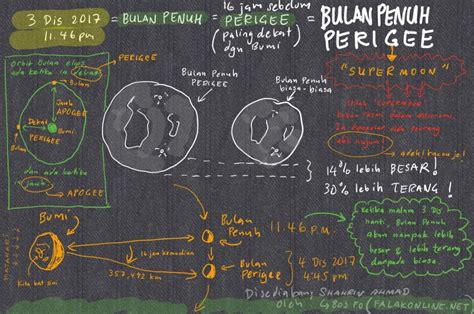 3 Dis 2017
11.46 pm
= BULAN PENUH
16 jam sebelum
PERIGEE
(paling dekat
dgn Bumi)
= BULAN PENUH
PERIGEE
"SUPERMOON"
orbit Bulan elips
ada ketika ia dekat
PERIGEE
Bulan
Jauh
APOGEE
Dekat
PERIGEE
Bumi
Bulan
dan ada ketika
jauh
APOGEE
Bulan Penuh
PERIGEE
Bulan Penuh
biasa-biasa
Istilah SUPERMOON
bukan rasmi dalam astronomi.
Ia
ahli nujum!
14% lebih BESAR!
30% lebih TERANG!
MATAHARI
BUMI
Kita kat sini
16 jam kemudian
357,492 km
Bulan
Penuh
11.46 P.M.
Bulan
Perigee
4 Dis 2017
4.45 pm
Ketika malam 3 Dis
nanti, Bulan Penuh
akan nampak lebih
besar & lebih terang
daripada biasa.
Disediakan SHAHRIN AHMAD
oleh
FALAKONLINE.NET